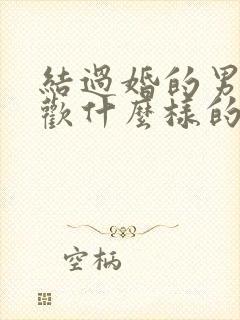 結過婚的男
歡什麼樣的
空柄